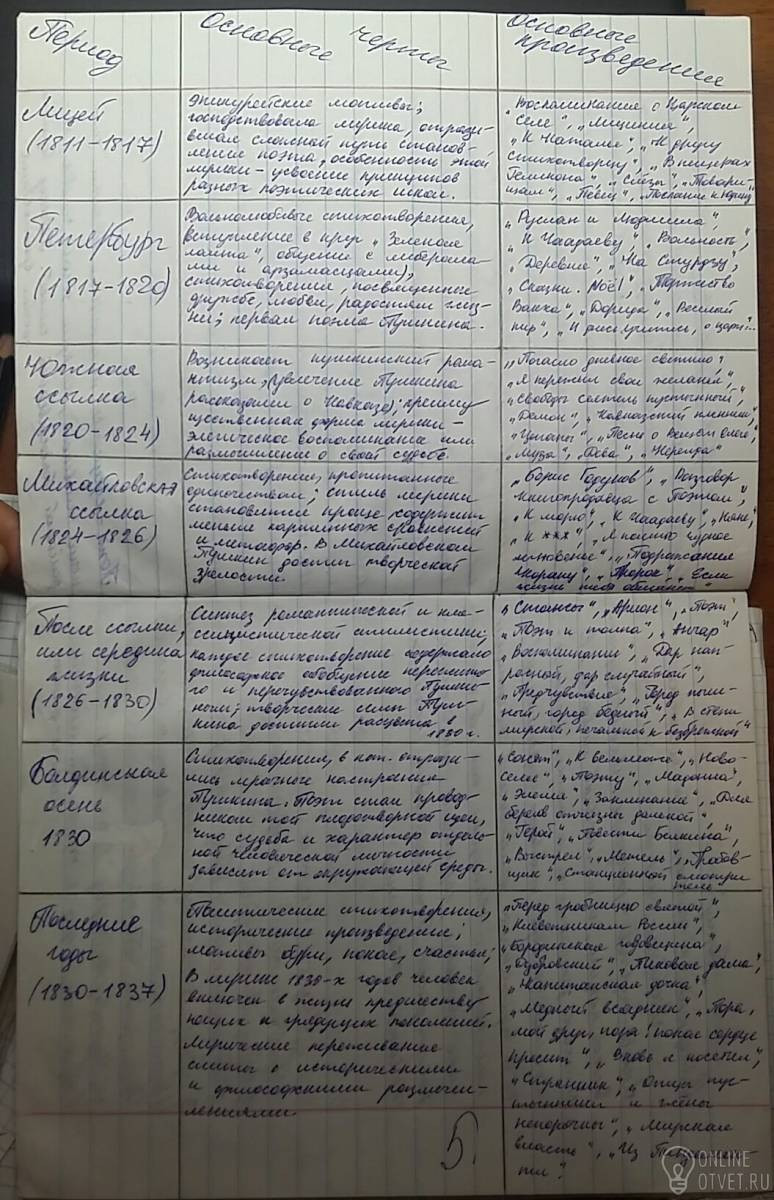 Период
Основные черты
Основные
произведения
Лицей
(1811-1817)
Эпикурейские мотивы;
господствовала лирика, отрази-
вшая сложный путь станов-
ления поэта, особенность этой
лирики - усвоение принципов
разных поэтических школ.
„Воспоминания о Царском
Селе", „Лициния",
„К Наталье", „К другу
стихотворцу",
„Слёзы", „Товари-
щам", „Певец", „Послание к Юдину"
Петербург
(1817-1820)
Вольнолюбивые стихотворения,
вступление в круж „Зелёная
лампа", общение с либерала-
ми и арзамасцами),
стихотворения, посвящённые
дружбе, любви, радостям жиз-
ни; первая поэма Пушкина.
„Руслан и Людмила",
„К Чаадаеву", „Вольность",
„Деревня", „На Стурдзу",
„Сказки. Noël", „Торжество
Вакха", „Дорида", „Веселый
пир",
Южная
ссылка
(1820-1824)
Возникает пушкинский рома-
нтизм, (увлечение Пушкина
рассказами о Кавказе); преиму
щественная форма лирики -
элегическое воспоминание или
размышление о своей судьбе.
„Погасло дневное светило",
„Я пережил свои желанья",
„Свободы сеятель пустынный",
„Демон", „Кавказский пленник",
„Цыганы", „Песнь о вещем Олеге",
„Муза", „Дева", „Нереида"
Михайловская
ссылка
(1824-1826)
Стихотворения, пропитанные
одиночеством; стиль лирики
становится проще, содержит
меньше картинных сравнений
и метафор. В Михайловском
Пушкин достиг творческой
зрелости.
„Борис Годунов", „Разговор
книгопродавца с Поэтом",
„К морю", „К Чаадаеву", „Няне",
„К ***", „Я помню чудное
мгновенье", „Подражания
Корану", „Пророк", „Если
жизнь тебя обманет"
После ссылки,
или середина
жизни
(1826-1830)
Синтез романтической и кла-
ссицистической стилистики;
каждое стихотворение содержало
философское обобщение пережито-
го и перечувствованного Пушки-
ным; творческие силы Пуш-
кина достигли расцвета в
1830 г.
„Стансы", „Арион", „Поэт",
„Поэт и толпа", „Анчар"
„Воспоминание", „Дар нап-
расный, дар случайный",
„Предчувствие", „Город пыш-
ный, город бедный", „В степи
мирской, печальной и безбрежной"
Болдинская
осень
1830
Стихотворения, в кот. отрази-
лись мрачные настроения
Пушкина. Поэт стал провод-
ником той плодотворной идеи,
что судьба и характер отдель-
ной человеческой личности
зависит от окружающей среды.
„Сонет", „К вельможе", „Ново-
селье", „Поэту", „Мадонна",
„Элегия", „Заклинание", „Для
берегов отчизны дальной",
„Герой", „Повести Белкина",
„Выстрел", „Метель", „Гробов-
щик", „Станционной смотри
теле
Последние
годы
(1830-1837)
Политические стихотворения,
исторические произведения;
мотивы бури, покоя, счастья;
В лирике 1830-х годов человек
включен в жизнь предшеству
ющих и грядущих поколений.
Лирические переживания
слиты с историческими
и философскими размыш-
лениями.
„Перед гробницею святой",
„Клеветникам России",
„Бородинская годовщина",
„Дубровский", „Пиковая дама",
„Капитанская дочка",
„Медный всадник", „Пора,
мой друг, пора! покоя сердце
просит", „Вновь я посетил",
„Странник", „Отцы пус-
тынники и жёны
непорочны", „Мирская
власть", „Из
5.
ONLINE
OTVET.RU